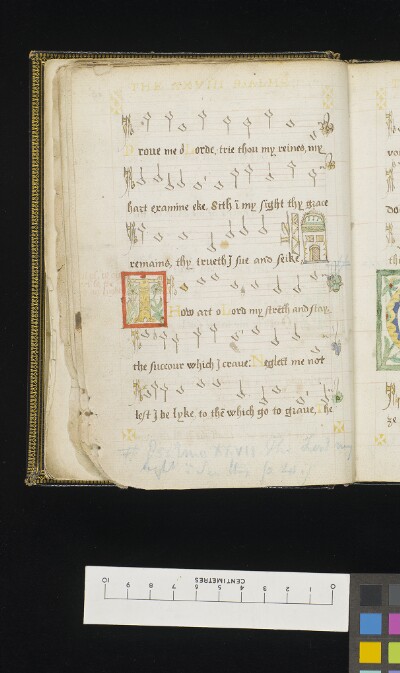 Prove me o Lorde, trie thou my reines, my
hart examine eke. Sith ī my sight thy grace
remains, thy trueth I sue and seike
Thow art o Lord my strēth and stay,
the succour which I craue: Neglect me not
lest I be lyke to thē which go to graue, the
Psalme XXVII the Lord my
light
CENTIMETRES
10 9 8 7 6 5 4 3 2 1 0